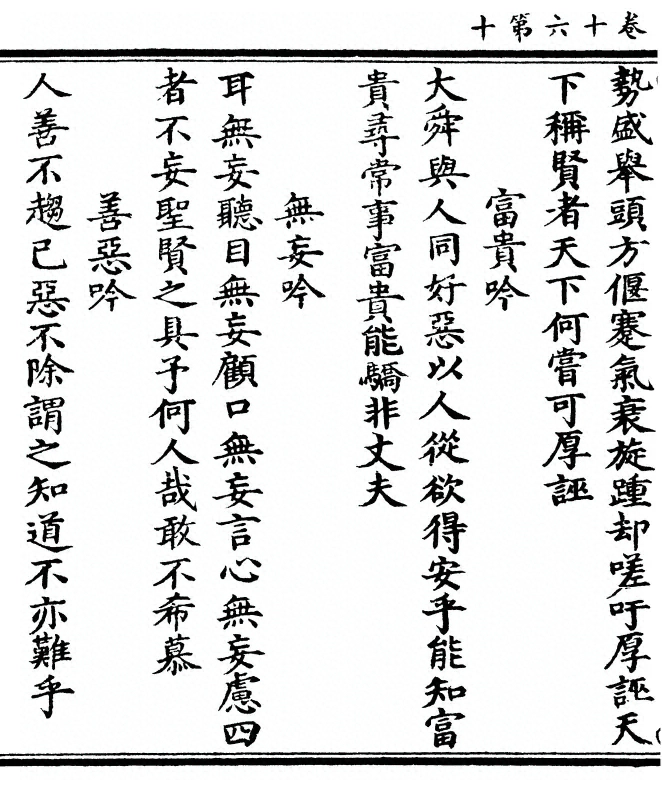 卷十六第十
勢盛舉頭方偃蹇氣衰旋踵却嗟吁厚誣天
下稱賢者天下何嘗可厚誣
富貴吟
大舜與人同好惡以人從欲得安乎能知富
貴尋常事富貴能驕非丈夫
無妄吟
耳無妄聽目無妄顧口無妄言心無妄慮四
者不妄聖賢之具予何人哉敢不希慕
善惡吟
人善不趨已惡不除謂之知道不亦難乎